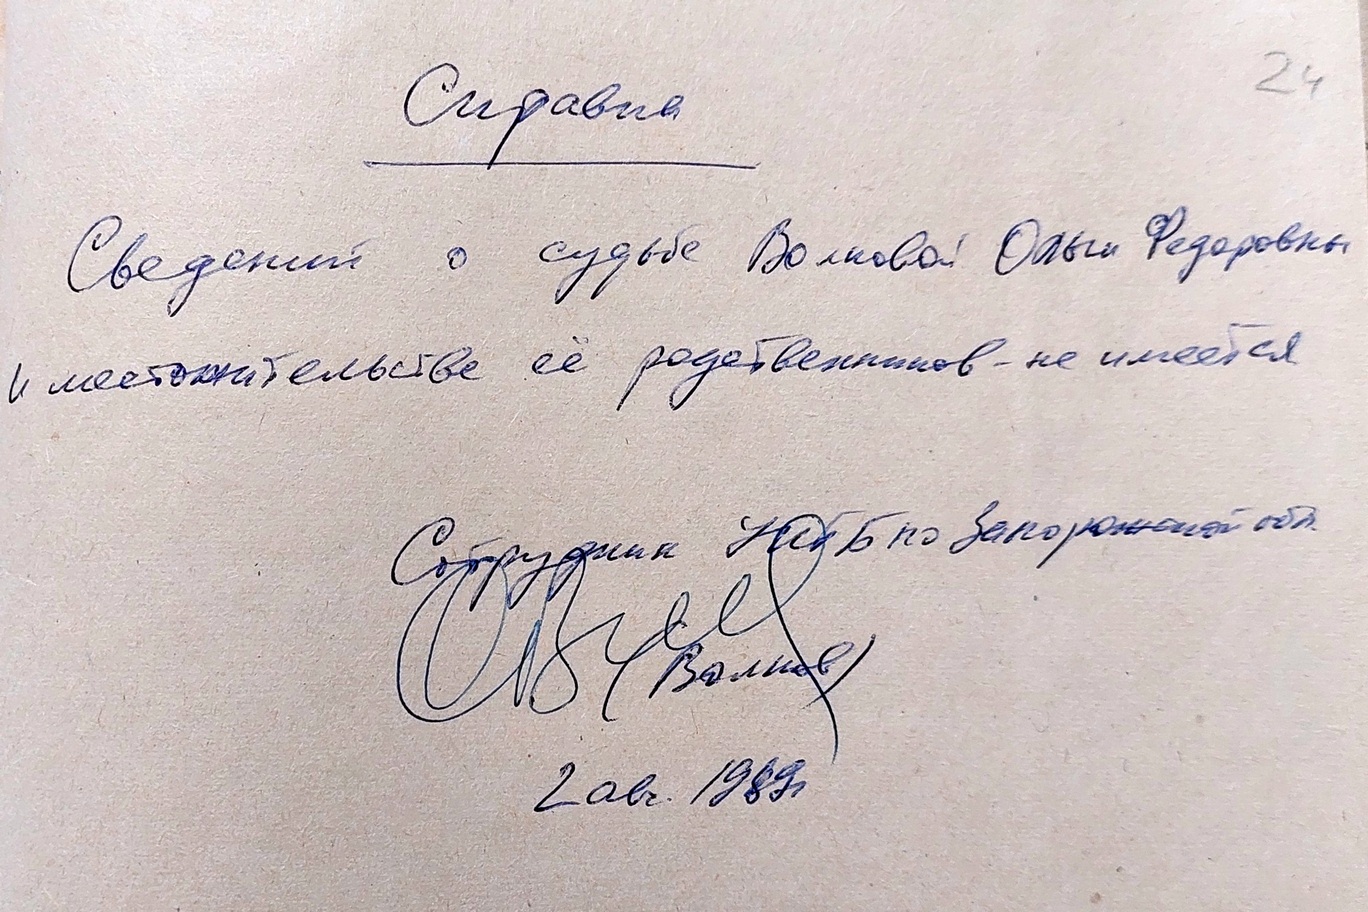 24
Справка
Сведений о судьбе Волковой Ольги Федоровны
и местожительстве её родственников - не имеется
Сотрудник УКГБ по Запорожской обл.
(Волков)
2 авг. 1989г